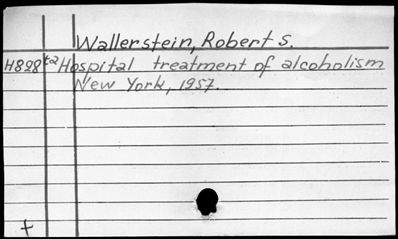 Wallerstein, Robert S.
H828 ta Hospital treatment of alcoholism
New York, 1957.